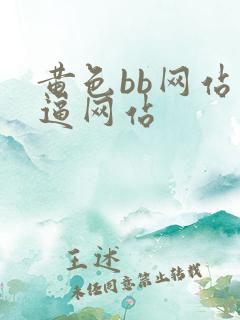 黄色bb网估
逼网估
王述
未经同意禁止转载